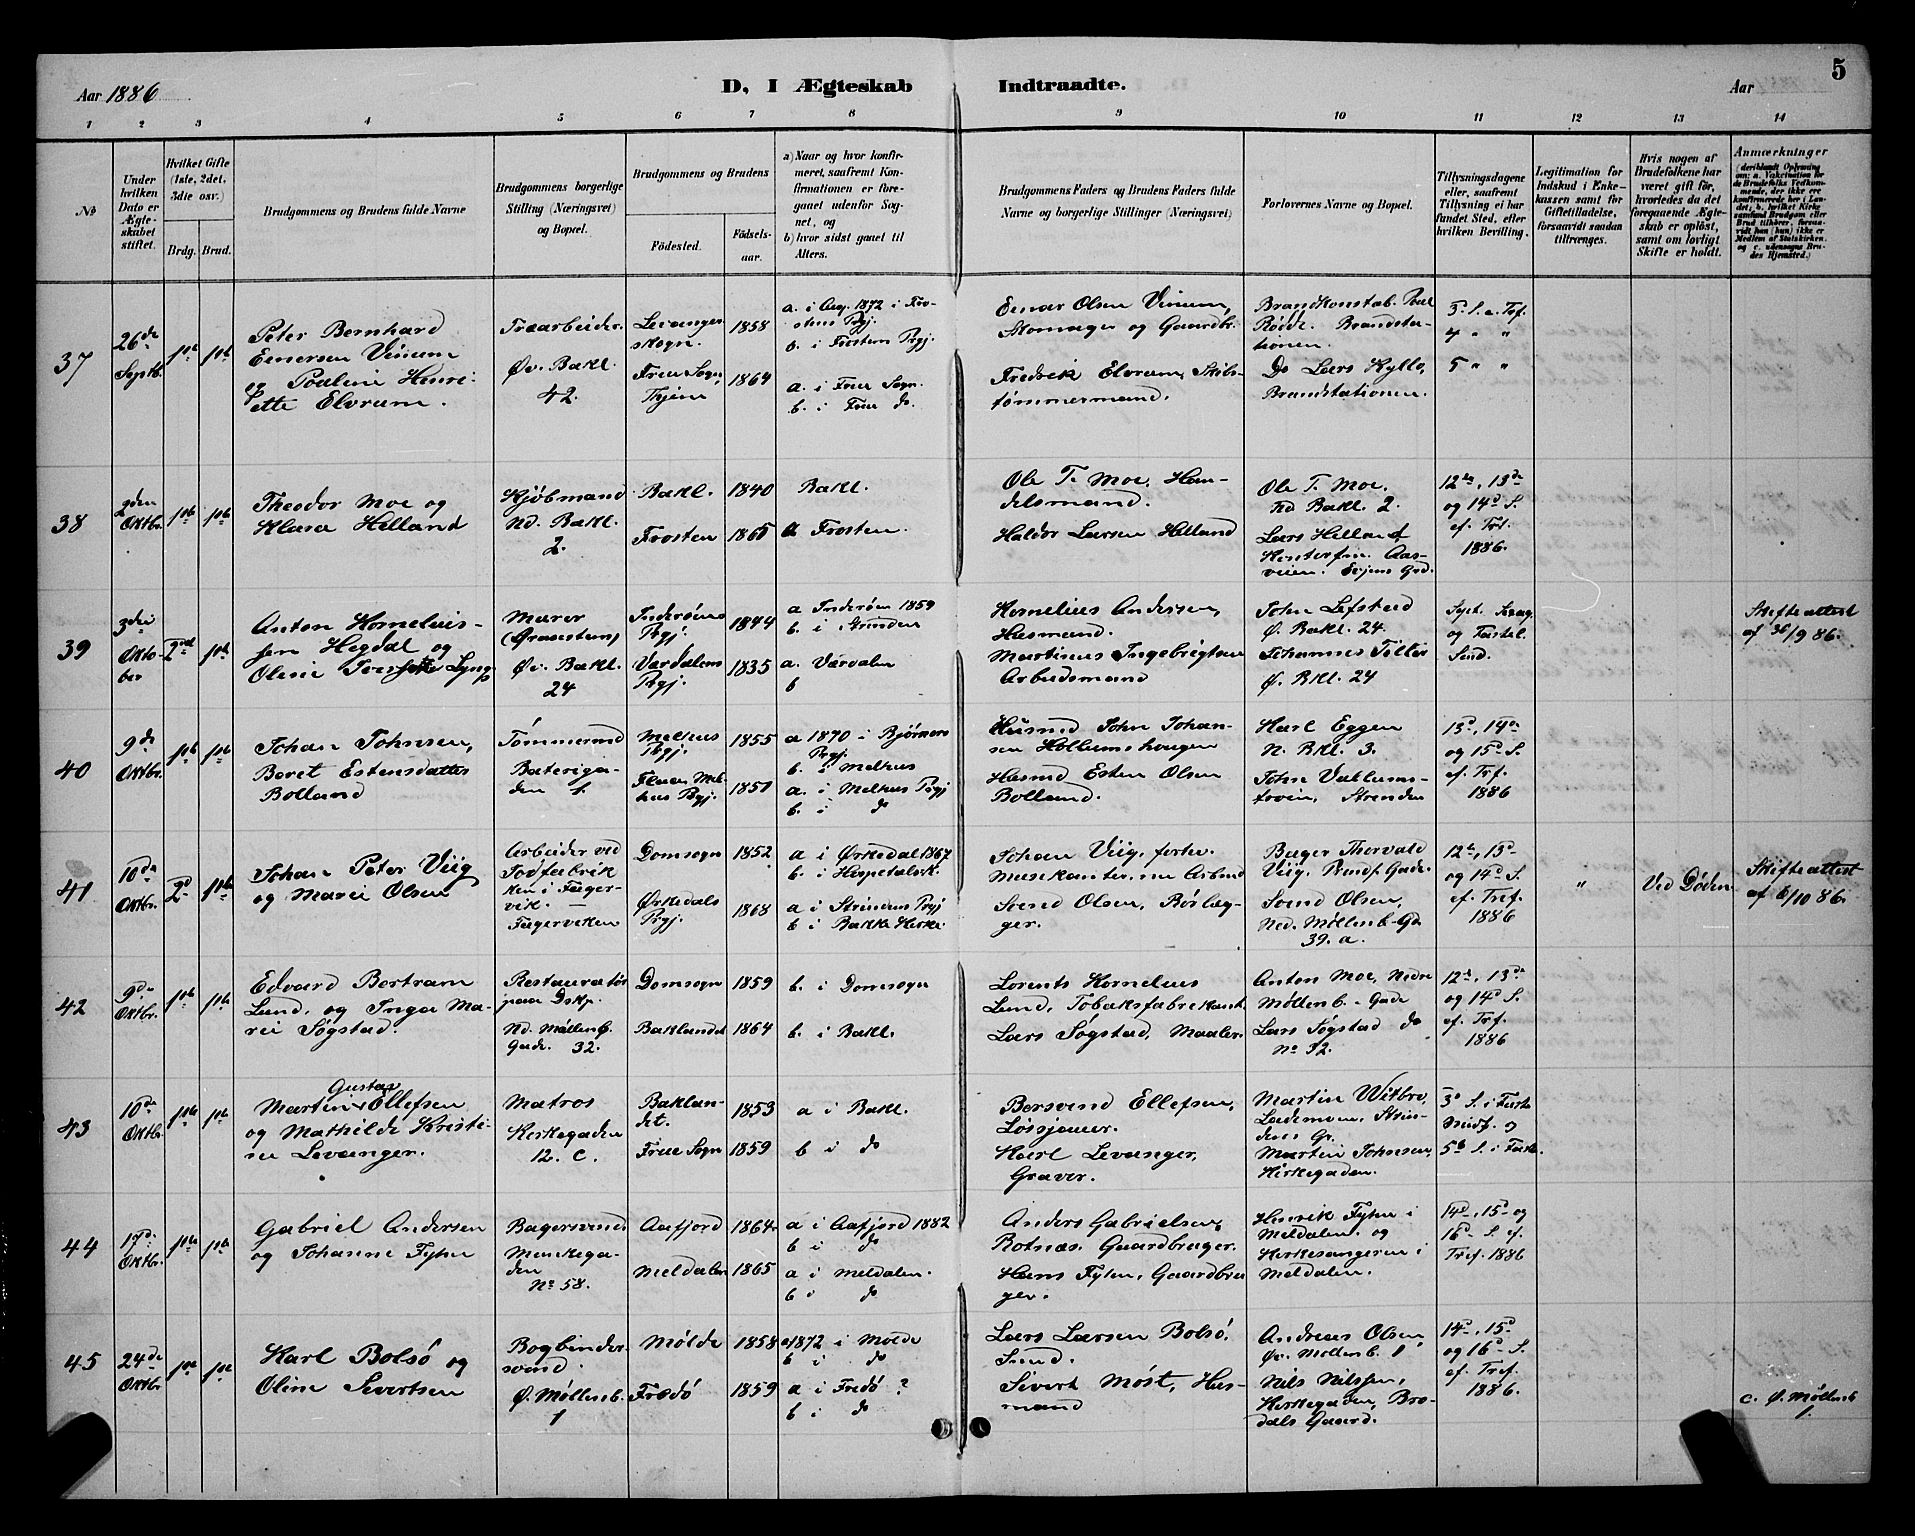 Aar 1886
D, I Ægteskab Indtraadte.
Aar
5
1 2 3 4 5 6 7 8 9 10 11 12 13 14
No
Under hvilken Dato er Ægteskabet stiftet.
Hvilket Gifte (1ste, 2det, 3die osv.)
Brdg. Brud.
Brudgommens og Brudens fulde Navne
Brudgommens borgerlige Stilling (Næringsvei) og Bopæl.
Brudgommens og Brudens
Födested.
Födselsaar.
a) Naar og hvor konfirmeret, saafremt Konfirmationen er foregaaet udenfor Sognet, og
b) hvor sidst gaaet til Alters.
Brudgommens Faders og Brudens Faders fulde Navne og borgerlige Stillinger (Næringsvei)
Forlovernes Navne og Bopæl.
Tillysningsdagene eller, saafremt Tillysning ei har fundet Sted, efter hvilken Bevilling.
Legitimation for Indskud i Enkekassen samt for Giftetilladelse, forsaavidt saadan tiltrænges.
Hvis nogen af Brudefolkene har været gift för, hvorledes da det foregaaende Ægteskab er oplöst, samt om lovligt Skifte er holdt.
Anmærkninger
37
26de Septb.
1ste 1ste
Peter Bernhard
Einersen Vinum
og Pauline Henri-
ette Elvrum.
Træarbeider
Øv. Bakl.
42.
Levanger
skogn.
Frue Sogn,
Thjem
1858
1864
a. i Aug. 1872 i Fro-
stens Pgj.
b. i Frosten Pgj.
a. i Frue Sogn.
b. i Frue do.
Einar Olsen Vinum,
Skomager og Gaardbr.
Fredrik Elvrum, Skibs-
tømmermand.
Brandkonstab. Paul
Rødde. Brandsta-
tionen.
Do Lars Kyllo,
Brandstationen.
3. S. e. Tref.
4 " "
5 " "
38
2den Oktbr.
1ste 1ste
Theodor Moe og
Klara Helland
Kjøbmand
Nd. Bakl.
2.
Bakl.
Frosten
1840
1865
Bakl.
a Frosten.
Ole T. Moe, Han-
delsmand.
Haldor Larsen Helland
Ole T. Moe.
Nd Bakl. 2.
Lars Helland
Aas-
veien. Evjens Grd.
12te, 13de
og 14d S.
ef. Trf.
1886.
39
3die Oktober
2det 1ste
Anton Kornelius-
sen Hegdal og
Oline
Murer
(Graasten)
Øv. Bakl.
24
Inderøens
Pgj.
Værdalens
Pgj.
1844
1835
a Inderøen 1859
b. i Strinden
a. Værdalen
b
Kornelius Andersen,
Husmand.
Martinus Ingebrigtsen
Arbeidsmand
John Lefstad
Ø. Bakl. 24.
Johannes Tiller
Ø. Bkl. 24
og
Skifteattest
af 30/9 86.
40
9de Oktbr.
1ste 1ste
Johan Johnsen,
Beret Estensdatter
Bolland
Tömmermd
Bateriga-
den 1.
Melhus
Pgj.
Flaaen Mel-
hus Pgj.
1855
1857
a 1870 i Bjørnørs
Pgj.
b. i Melhus
a. i Melhus Pgj
b. i do
Husmd John Johan-
sen Hollumshaugen
Husmd Esten Olsen
Bolland.
Karl Eggen
N. Bkl. 3.
John Vullums-
trøen, Strinden
13d, 14de
og 15d S.
ef. Trf.
1886
41
10de Oktbr.
2d 1ste
Johan Peter Viig
og Marie Olsen
Arbeider ved
Jodfabrik
ken i Fager-
vik. —
Fagerviken
Domsogn
Ørkedals
Pgj.
1852
1868
a i Ørkedal 1867
b. i Hospetalsk.
a i Strindens Pgj
b i Bakke Kirke.
Johan Viig, forhv.
Musikanter, nu Arbmd
Svend Olsen, Rörlæg-
ger.
Bager Thorvald
Viig, Rindf. Gade.
Svend Olsen,
Ned. Möllenb-Gd
39. a.
12te, 13d
og 14d S.
ef. Tref.
1886
"
Ved Døden
Skifteattest
af 6/10 86.
42
9de Oktbr.
1ste 1ste
Edvard Bertram
Lund, og Inga Ma-
rie Søgstad.
Restauratør
paa Dskp.
Nd. Möllenb.
Gade. 32.
Domsogn
Baklandet
1859
1864
b. i Domsogn
b. i Bakl.
Lorents Kornelius
Lund, Tobaksfabrikant
Lars Søgstad, Maaler.
Anton Moe, Nedre
Möllenb.-Gade
Lars Søgstad do
No 32.
12te, 13de
og 14d S.
ef. Trf.
1886
43
10de Oktbr.
1ste 1ste
Gustav
Martin Ellefsen
og Mathilde Kristi-
ne Levanger.
Matros
Kirkegaden
12. c.
Baklan-
det.
Frue Sogn
1853
1859
a i Bakl.
b i do
Bersvend Ellefsen,
Losjemer.
Karl Levanger,
Graver.
Martin Witbro,
Lademoen, Strin-
dens Gr.
Martin Johnsen,
Kirkegaden.
3d S. i Faste
Midf. og
5te S. i Faste.
44
17de Oktbr.
1ste 1ste
Gabriel Andersen
og Johanne Fyhn
Bagersvend
Munkega-
den
No 58.
Aafjord
Meldalen
1864
1865
a i Aafjord 1882
b i do
a i Meldalen.
b i do
Anders Gabrielsen,
Rotnæs. Gaardbruger.
Hans Fyhn, Gaardbru
ger.
Henrik Fyhn i
Meldalen og
Kirkesangeren i
Meldalen.
14d, 15d og
16d S. ef.
Tref. 1886
45
24de Oktbr.
1ste 1ste
Karl Bolsö og
Oline Sivertsen
Bogbinder
svend.
Ø. Möllenb.
1
Molde
Frædö
1858
1859
a 1872 i Molde
b i do
a i Fredö ?
b i do
Lars Larsen Bolsö,
Smed.
Sivert Most, Hus-
mand
Andreas Olsen
Øv. Möllenb. 1
Nils Nilssen,
Kirkegaden, Bro-
dals Gaard.
14d, 15d
og 16d S.
ef. Tref.
1886.
c. Ø. Möllenb
1.